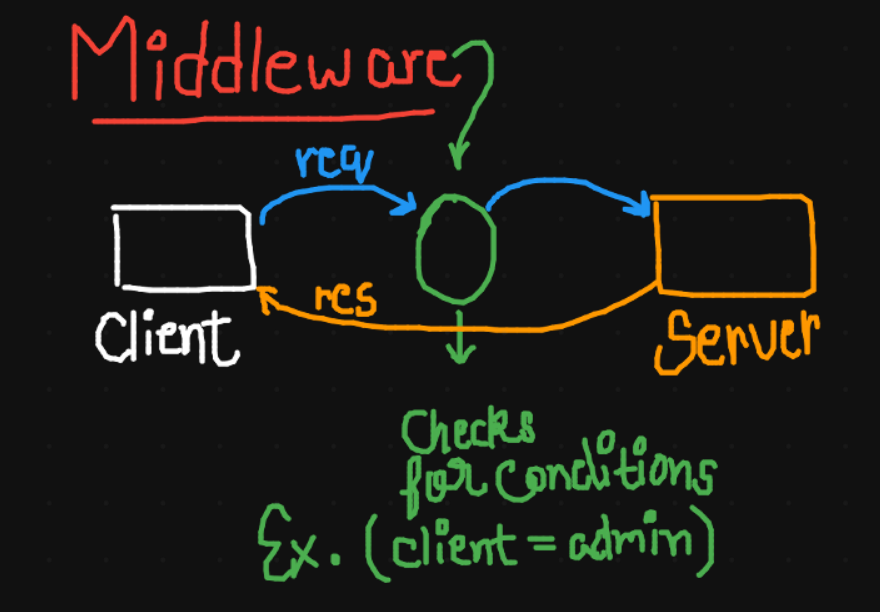 Middleware
req
res
Client
Server
Checks
for conditions
Ex. (client = admin)